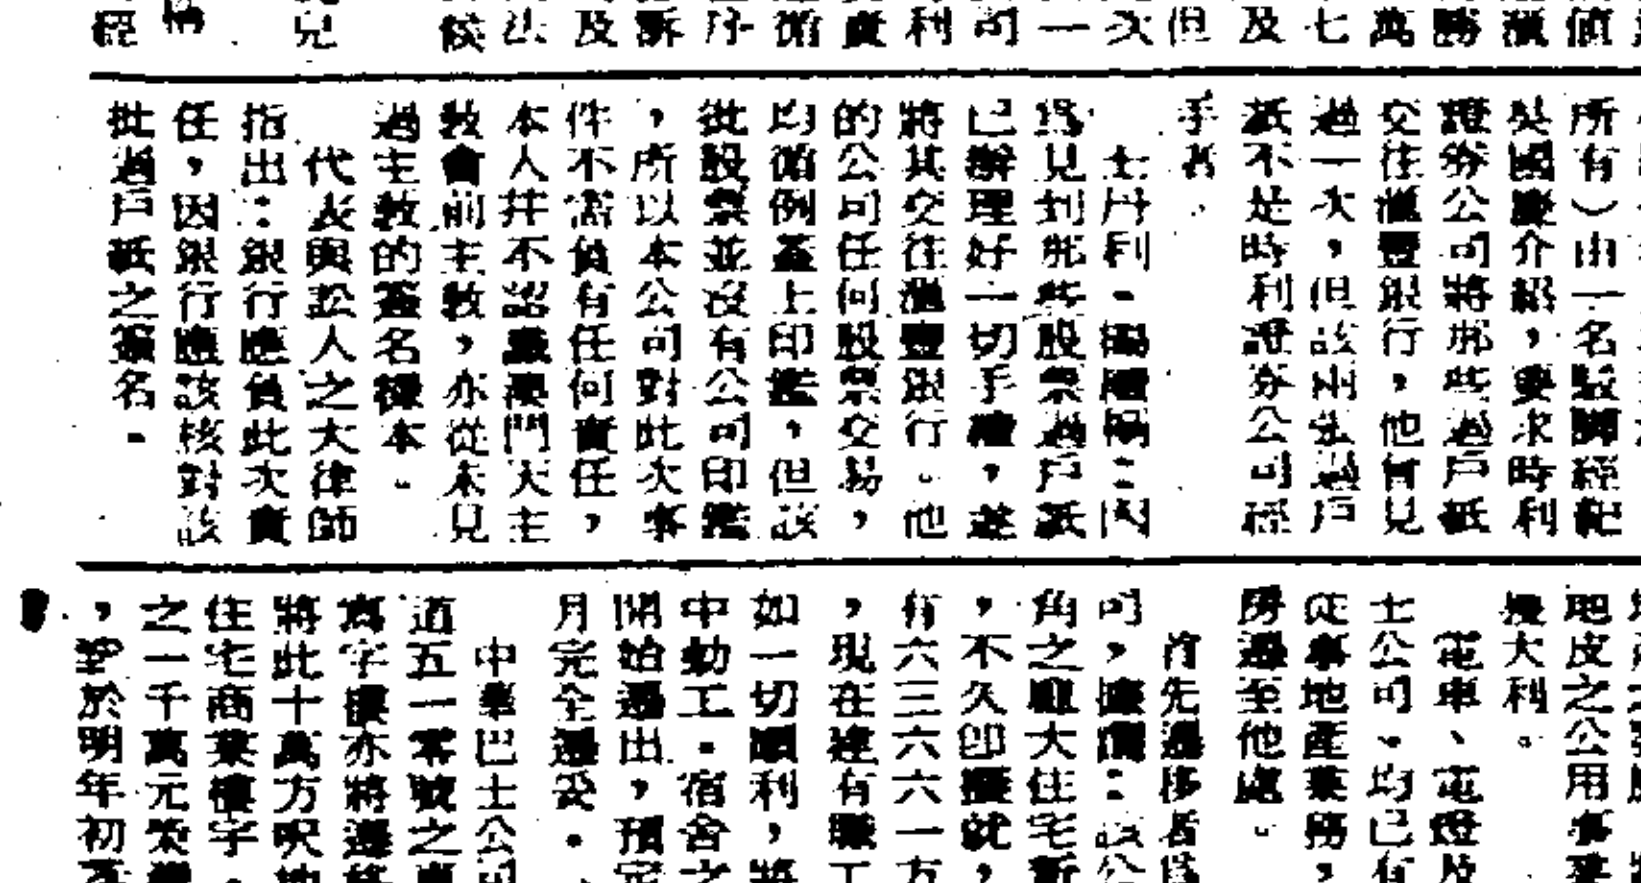 值
萬
七
及
但
次
一
司
利
責
循
序
訴
及
法
候
兒
經
所有）由一名駁脚經紀
吳國慶介紹，要求時利
證券公司將那些過戶紙
交往滙豐銀行，他曾見
過一次，但該兩張過戶
紙不是時利證券公司經
手者。
士丹利．楊續稱：因
爲見到那些股票過戶紙
已辦理好一切手續，遂
將其交往滙豐銀行。他
的公司任何股票交易，
均循例蓋上印鑑，但該
批股票並沒有公司印鑑
，所以本公司對此次事
件不需負有任何責任，
本人并不認識澳門天主
教會前主教，亦從未見
過主教的簽名樣本。
代表與訟人之大律師
指出：銀行應負此次責
任，因銀行應該核對該
批過戶紙之簽名。
地皮之公用事業
大利。
電車、電燈及
士公司、均已有
從事地產業務，
房遷至他處。
首先遷移者爲
司，據謂：該公
角之龐大住宅新
，不久卽擬就，
有六三六六一方
，現在建有職工
如一切順利，將
中動工。宿舍之
開始遷出，預定
月完全遷妥。
中華巴士公司
道五一零號之
寫字樓亦將遷移
將此十萬方呎地
住宅商業樓宇。
之一千萬元
，於明年初